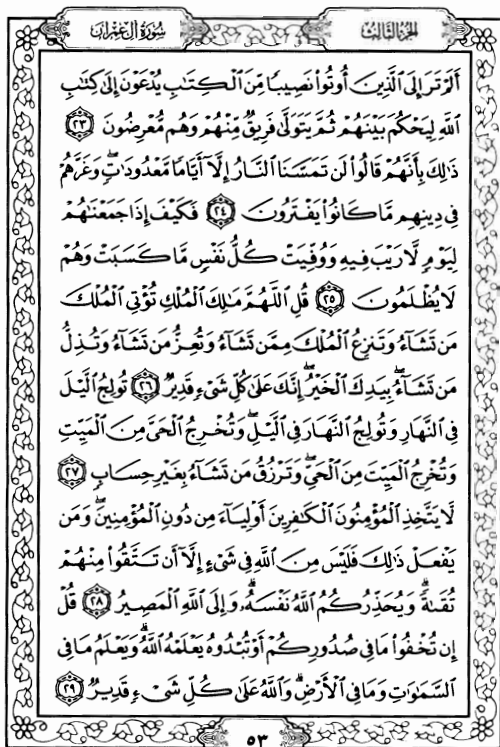 سُورَةُ آلِ عِمْرَان
الجُزْءُ الثَّالِثُ
أَلَمْ تَرَ إِلَى ٱلَّذِينَ أُوتُوا۟ نَصِيبًا مِّنَ ٱلْكِتَٰبِ يُدْعَوْنَ إِلَىٰ كِتَٰبِ
ٱللَّهِ لِيَحْكُمَ بَيْنَهُمْ ثُمَّ يَتَوَلَّىٰ فَرِيقٌ مِّنْهُمْ وَهُم مُّعْرِضُونَ ٢٣
ذَٰلِكَ بِأَنَّهُمْ قَالُوا۟ لَن تَمَسَّنَا ٱلنَّارُ إِلَّآ أَيَّامًا مَّعْدُودَٰتٍ ۖ وَغَرَّهُمْ
فِى دِينِهِم مَّا كَانُوا۟ يَفْتَرُونَ ٢٤ فَكَيْفَ إِذَا جَمَعْنَٰهُمْ
لِيَوْمٍ لَّا رَيْبَ فِيهِ وَوُفِّيَتْ كُلُّ نَفْسٍ مَّا كَسَبَتْ وَهُمْ
لَا يُظْلَمُونَ ٢٥ قُلِ ٱللَّهُمَّ مَٰلِكَ ٱلْمُلْكِ تُؤْتِى ٱلْمُلْكَ
مَن تَشَآءُ وَتَنزِعُ ٱلْمُلْكَ مِمَّن تَشَآءُ وَتُعِزُّ مَن تَشَآءُ وَتُذِلُّ
مَن تَشَآءُ ۖ بِيَدِكَ ٱلْخَيْرُ ۖ إِنَّكَ عَلَىٰ كُلِّ شَىْءٍ قَدِيرٌ ٢٦ تُولِجُ ٱلَّيْلَ
فِى ٱلنَّهَارِ وَتُولِجُ ٱلنَّهَارَ فِى ٱلَّيْلِ ۖ وَتُخْرِجُ ٱلْحَىَّ مِنَ ٱلْمَيِّتِ
وَتُخْرِجُ ٱلْمَيِّتَ مِنَ ٱلْحَىِّ ۖ وَتَرْزُقُ مَن تَشَآءُ بِغَيْرِ حِسَابٍ ٢٧
لَّا يَتَّخِذِ ٱلْمُؤْمِنُونَ ٱلْكَٰفِرِينَ أَوْلِيَآءَ مِن دُونِ ٱلْمُؤْمِنِينَ ۖ وَمَن
يَفْعَلْ ذَٰلِكَ فَلَيْسَ مِنَ ٱللَّهِ فِى شَىْءٍ إِلَّآ أَن تَتَّقُوا۟ مِنْهُمْ
تُقَىٰةً ۗ وَيُحَذِّرُكُمُ ٱللَّهُ نَفْسَهُۥ ۗ وَإِلَى ٱللَّهِ ٱلْمَصِيرُ ٢٨ قُلْ
إِن تُخْفُوا۟ مَا فِى صُدُورِكُمْ أَوْ تُبْدُوهُ يَعْلَمْهُ ٱللَّهُ ۗ وَيَعْلَمُ مَا فِى
ٱلسَّمَٰوَٰتِ وَمَا فِى ٱلْأَرْضِ ۗ وَٱللَّهُ عَلَىٰ كُلِّ شَىْءٍ قَدِيرٌ ٢٩
٥٣